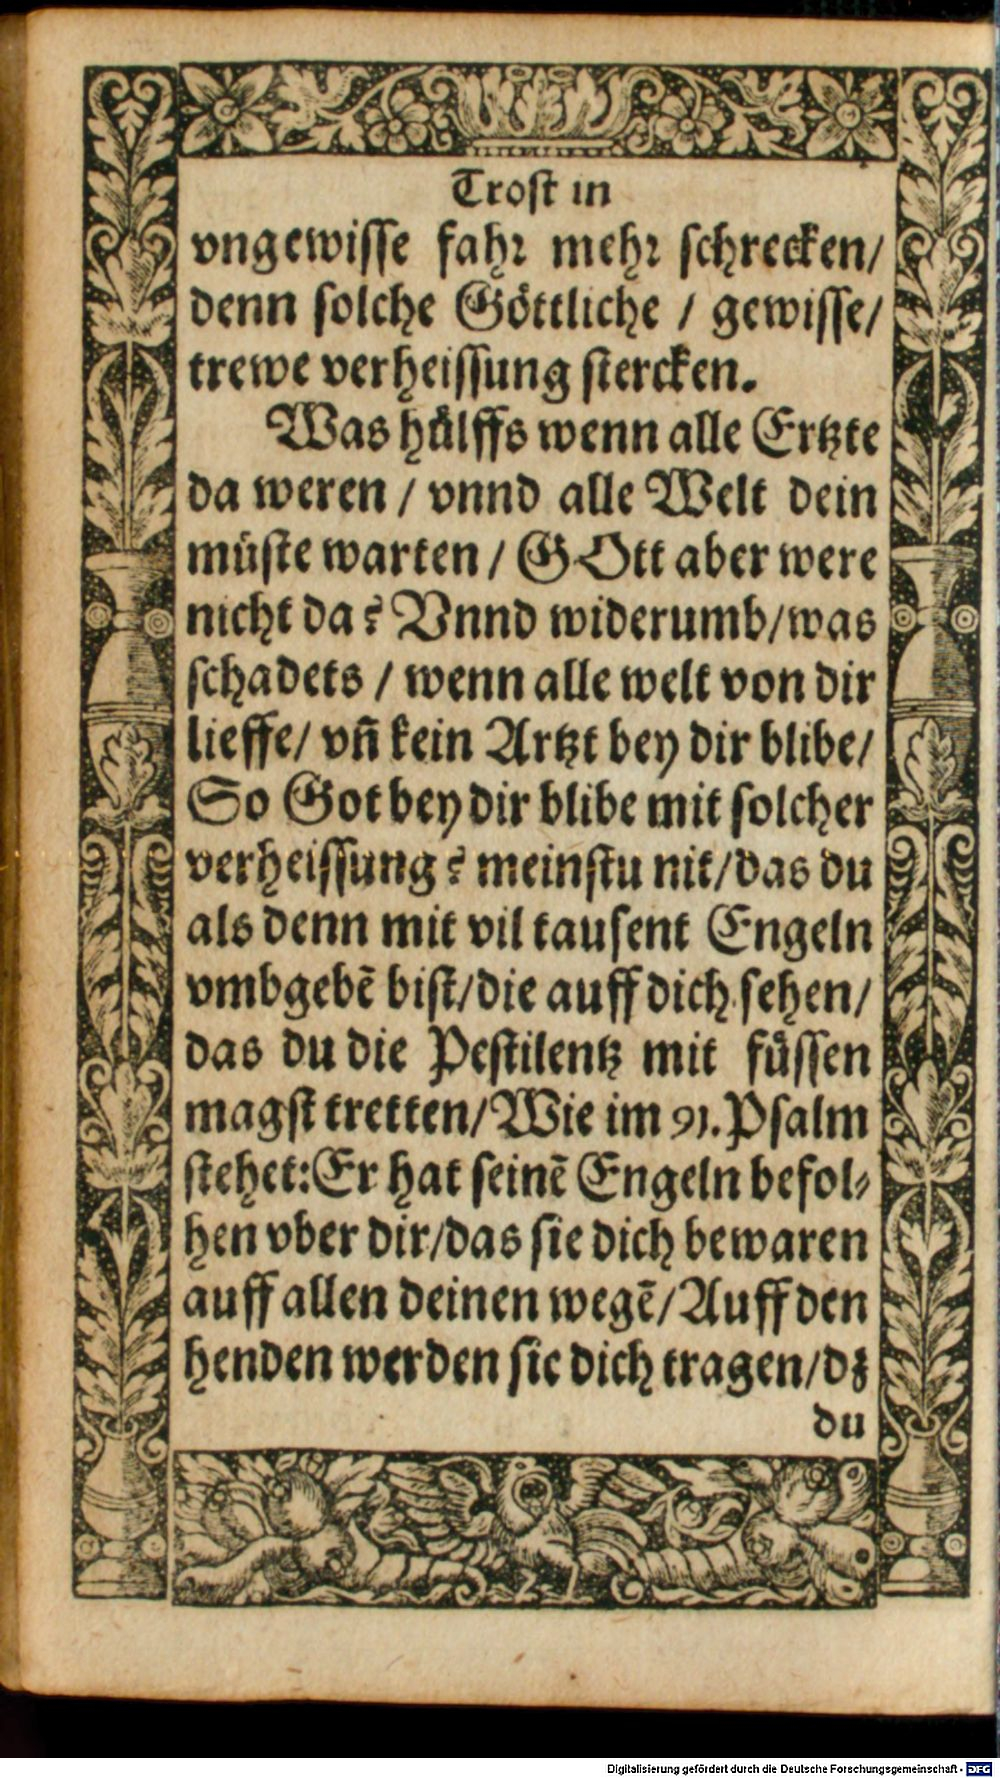 Trost in
vngewisse fahr mehr schrecken/
denn solche Göttliche / gewisse/
trewe verheissung stercken.
Was hülffs wenn alle Ertzte
da weren / vnnd alle Welt dein
müste warten / GOtt aber were
nicht da? Vnnd widerumb/was
schadets / wenn alle welt von dir
lieffe/ vñ kein Artzt bey dir blibe/
So Got bey dir blibe mit solcher
verheissung? meinstu nit/das du
als denn mit vil tausent Engeln
vmbgebē bist/die auff dich sehen/
das du die Pestilentz mit füssen
magst tretten/Wie im 91. Psalm
stehet: Er hat seinē Engeln befol-
hen vber dir/das sie dich bewaren
auff allen deinen wegē/Auff den
henden werden sie dich tragen/dz
du
Digitalisierung gefördert durch die Deutsche Forschungsgemeinschaft - DFG